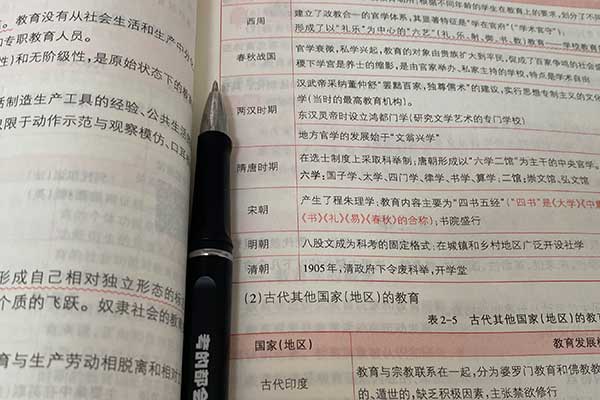 。教育没有从社会生活和生产中分
的专职教育人员。
性)和无阶级性,是原始状态下的教
活制造生产工具的经验、公共生活
仅限于动作示范与观察模仿、口耳
形成自己相对独立形态的标
个质的飞跃。奴隶社会的教
育与生产劳动相脱离和相对
西周
建立了政教合一的官学体系,其显著特征是“学在官府”(“学术官守”);
形成了以“礼乐”为中心的“六艺”(礼、乐、射、御、书、数)教育——学校教育
春秋战国
官学衰微,私学兴起,教育的对象由贵族扩大到平民,促成了百家争鸣的社会盛
稷下学宫是养士的缩影,是由官家举办、私家主持的学校,特点是学术自由
两汉时期
汉武帝采纳董仲舒“罢黜百家,独尊儒术”的建议,实行思想专制主义的文化
学(当时的最高教育机构)。
东汉灵帝时设立鸿都门学(研究文学艺术的专门学校)
地方官学的发展始于“文翁兴学”
隋唐时期
在选士制度上采取科举制;唐朝形成以“六学二馆”为主干的中央官学。
六学:国子学、太学、四门学、律学、书学、算学;二馆:崇文馆、弘文馆
宋朝
产生了程朱理学;教育内容主要为“四书五经”(“四书”是《大学》《中
《书》《礼》《易》《春秋》的合称);书院盛行
明朝
八股文成为科考的固定格式;在城镇和乡村地区广泛开设社学
清朝
1905年,清政府下令废科举,开学堂
(2)古代其他国家(地区)的教育
表2-5 古代其他国家(地区)的
国家(地区)
教育发展
古代印度
教育与宗教联系在一起,分为婆罗门教育和佛教教
的、遁世的,缺乏积极因素,主张禁欲修行
考的都会